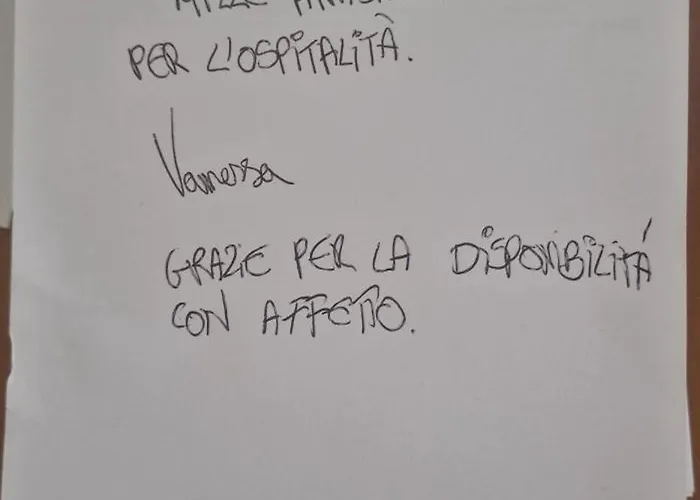 PER L'OSPITALITÀ.
Vanessa
GRAZIE PER LA DISPONIBILITÁ
CON AFFETTO.